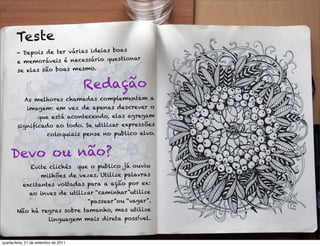 Teste
- Depois de ter várias ideias boas
e memoráveis é necessário questionar
se elas são boas mesmo.
Redação
As melhores chamadas complementam a
imagem: em vez de apenas descrever o
que está acontecendo, elas agregam
significado ao todo. Se utilizar expressões
coloquiais pense no publico alvo.
Devo ou não?
Evite clichês que o publico já ouviu
milhões de vezes. Utilize palavras
excitantes voltadas para a ação por ex:
ao invés de utilizar "caminhar"utilize
"passear"ou "vagar".
Não há regras sobre tamanho, mas utilize
linguagem mais direta possível.
quarta-feira, 21 de setembro de 2011